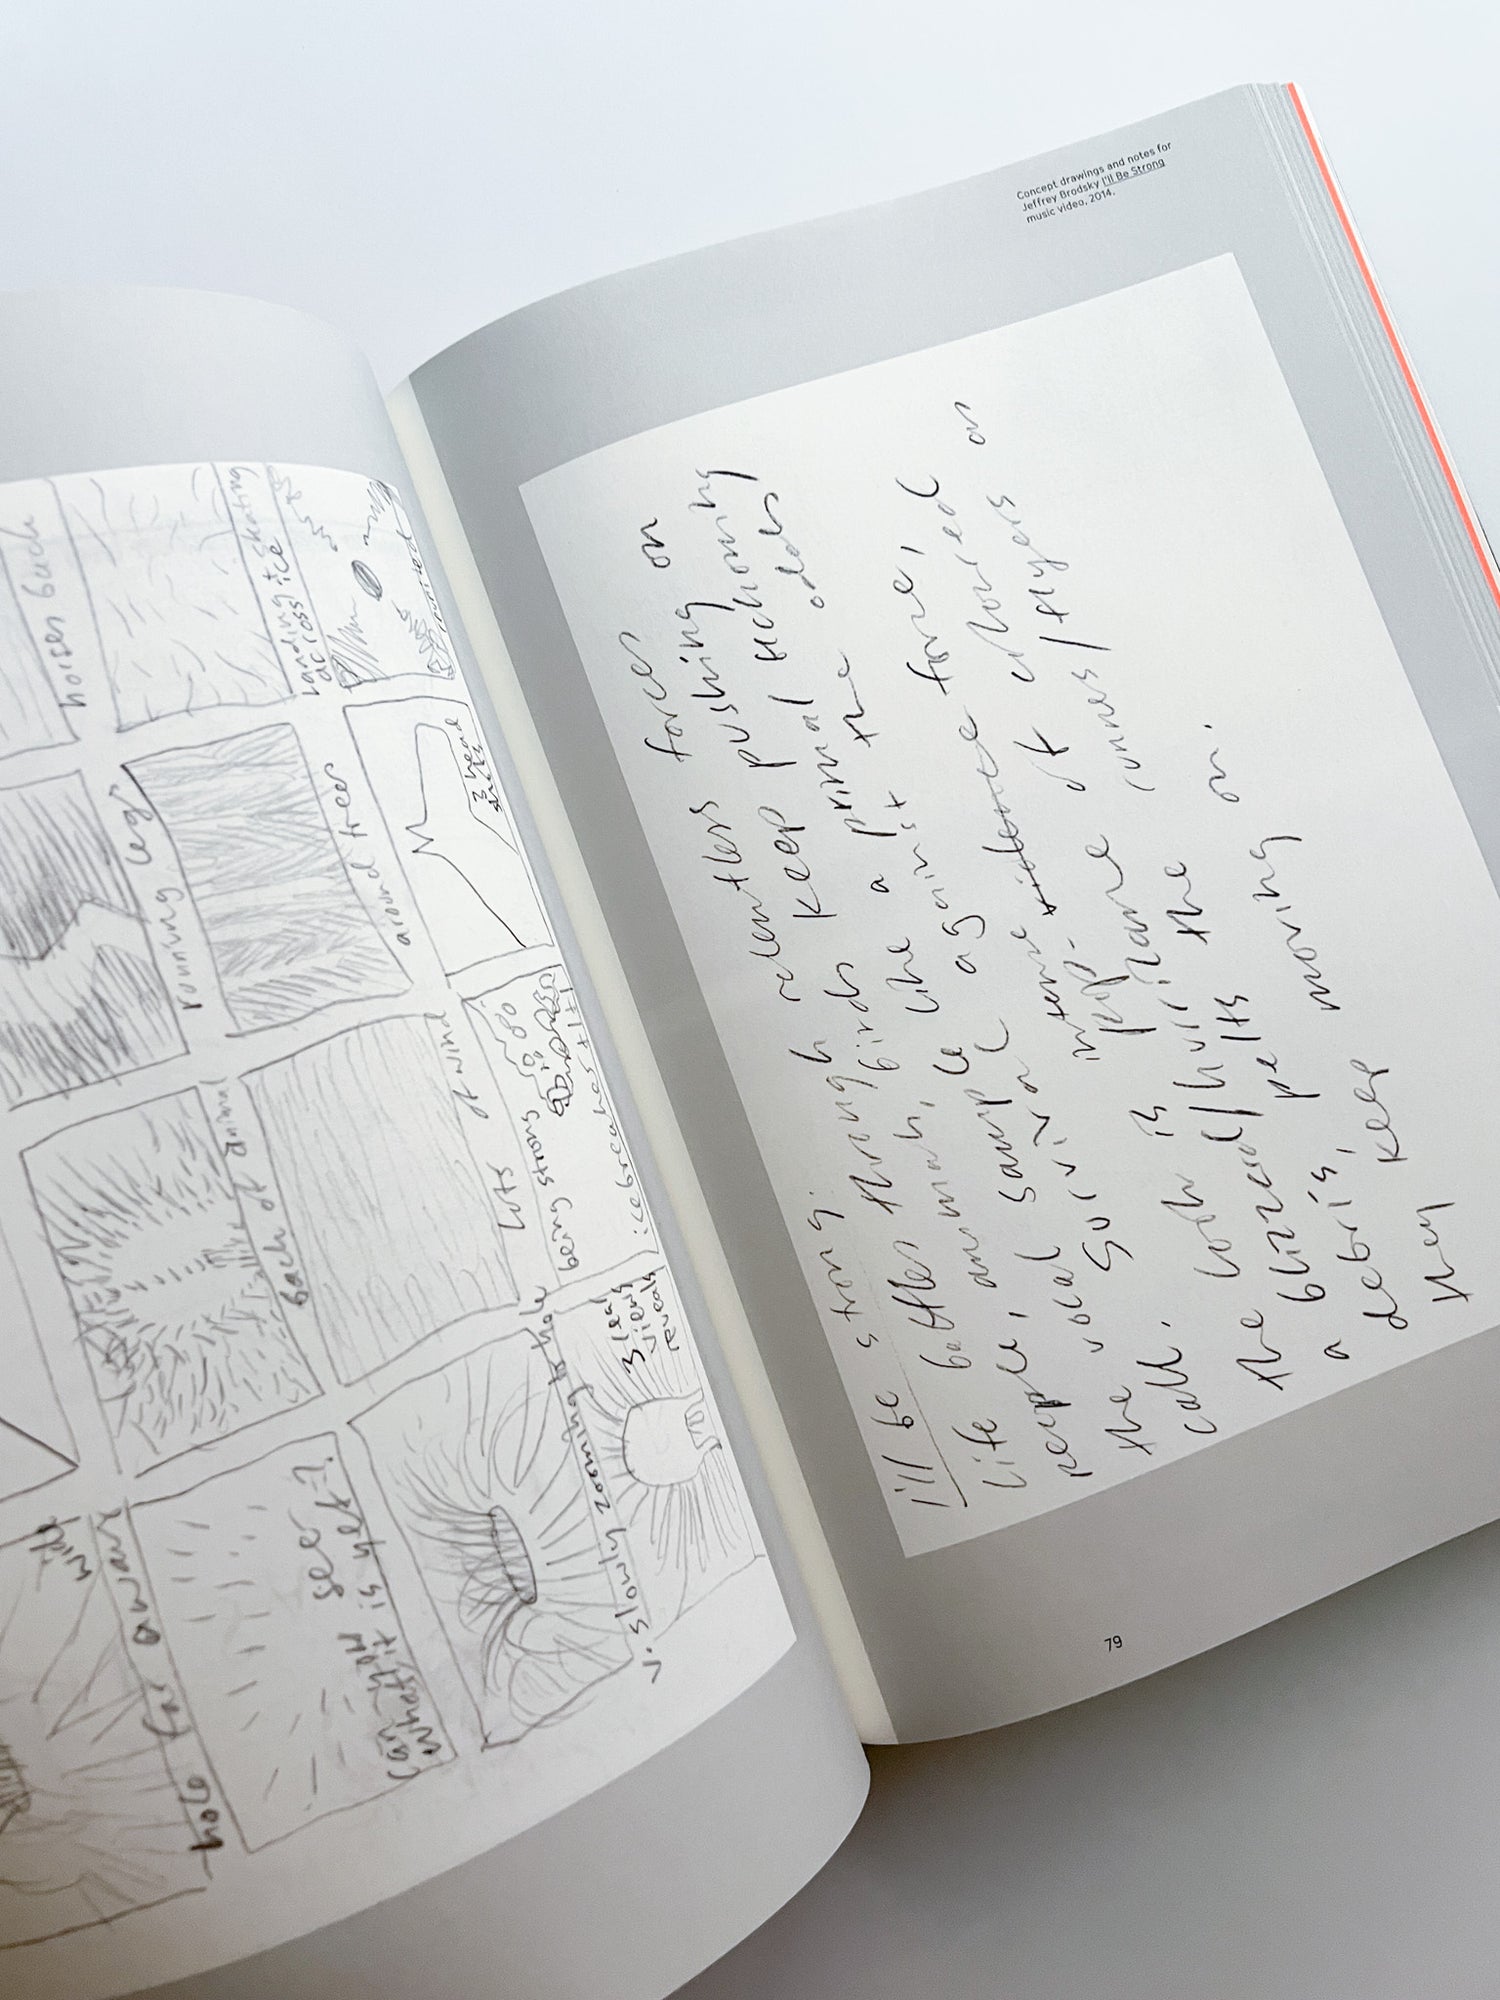 Concept drawings and notes for
Jeffrey Brodsky I'll Be Strong
music video, 2014.
horses back
landing + skating
across ice
reunited
running legs
around trees
3 head
shots
back of animal
lots of wind
being strong
icebreakers tilt!
wide
hole far away
can you see
what it is yet?
v. slowly zooming to hole
3 leg
views
reveals
i'll be strong.
life battles through relentless forces on
people, animals, birds keep pushing
the vocal sample like a primal beckoning
call. Survival against the odds/
the look is intense force,
a blizzard/hurricane of coloured
debris, pelts the runners/flyers as
they keep moving on.
79